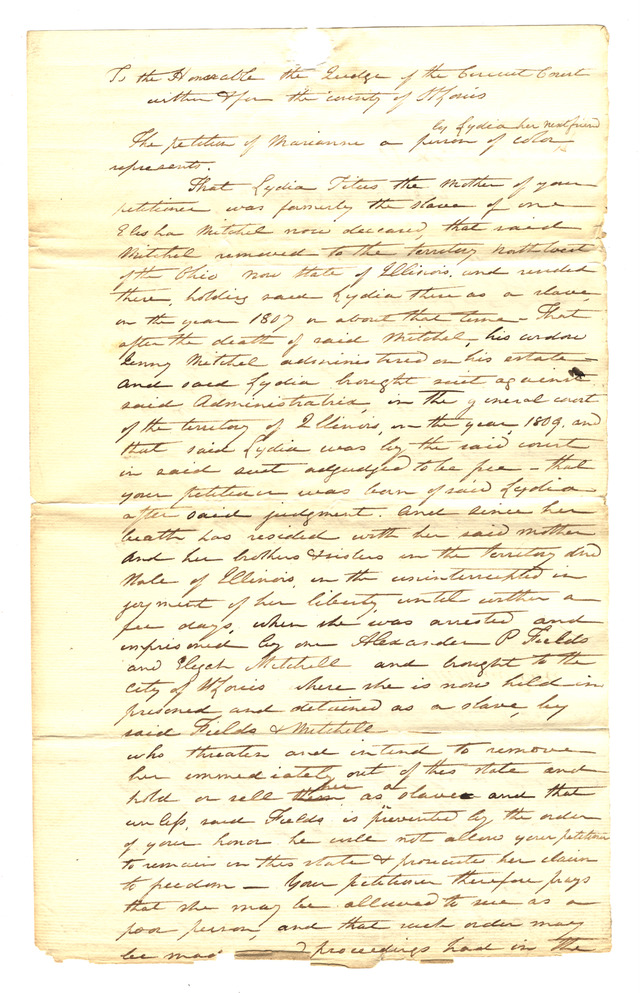 To the Honorable the Judge of the Circuit Court
within & for the county of St Louis
by Lydia her next friend
The petition of Marianne a person of color
represents.
That Lydia Titus the Mother of your
petitioner was formerly the slave of one
Elisha Mitchel now deceased, that said
Mitchel removed to the territory North West
of the Ohio now State of Illinois, and resided
there, holding said Lydia there as a slave,
in the year 1807 or about that time - That
after the death of said Mitchel, his widow
Jenny Mitchel administered on his estate -
and said Lydia brought suit against
said Administratrix, in the general court
of the territory of Illinois, in the year 1809. and
that said Lydia was by the said court
in said suit adjudged to be free - that
your petitioner was born of said Lydia
after said judgment. And since her
beath has resided with her said mother
and her brothers & sisters in the territory and
State of Illinois, in the uninterrupted in
joyment of her liberty until within a
few days, when she was arrested and
imprisoned by one Alexander P Fields
and Elijah Mitchell and brought to the
City of St Louis where she is now held im
prisoned and detained as a slave, by
said Fields & Mitchell
who threaten and intend to remove
her immediately out of this state and
her a
hold or sell them as slave and that
unless, said Fields is prevented by the order
of your honor he will not allow your petitioner
to remain in this state & prosecute her claim
to freedom - Your petitioner therefore prays
that she may be allowed to sue as a
poor person, and that such order may
be mad proceedings had in the